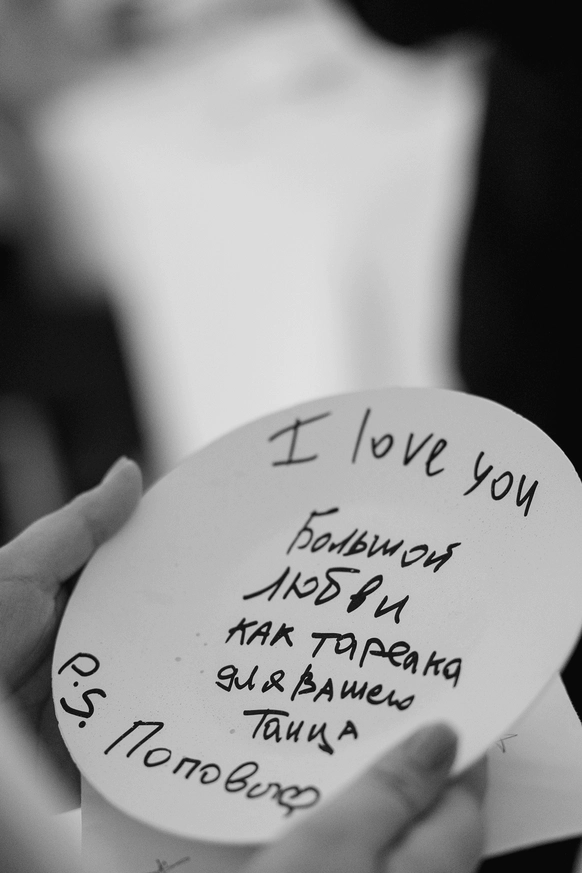 I love you
Большой
любви
как тарелка
для вашего
танца
P.S.
Поповы